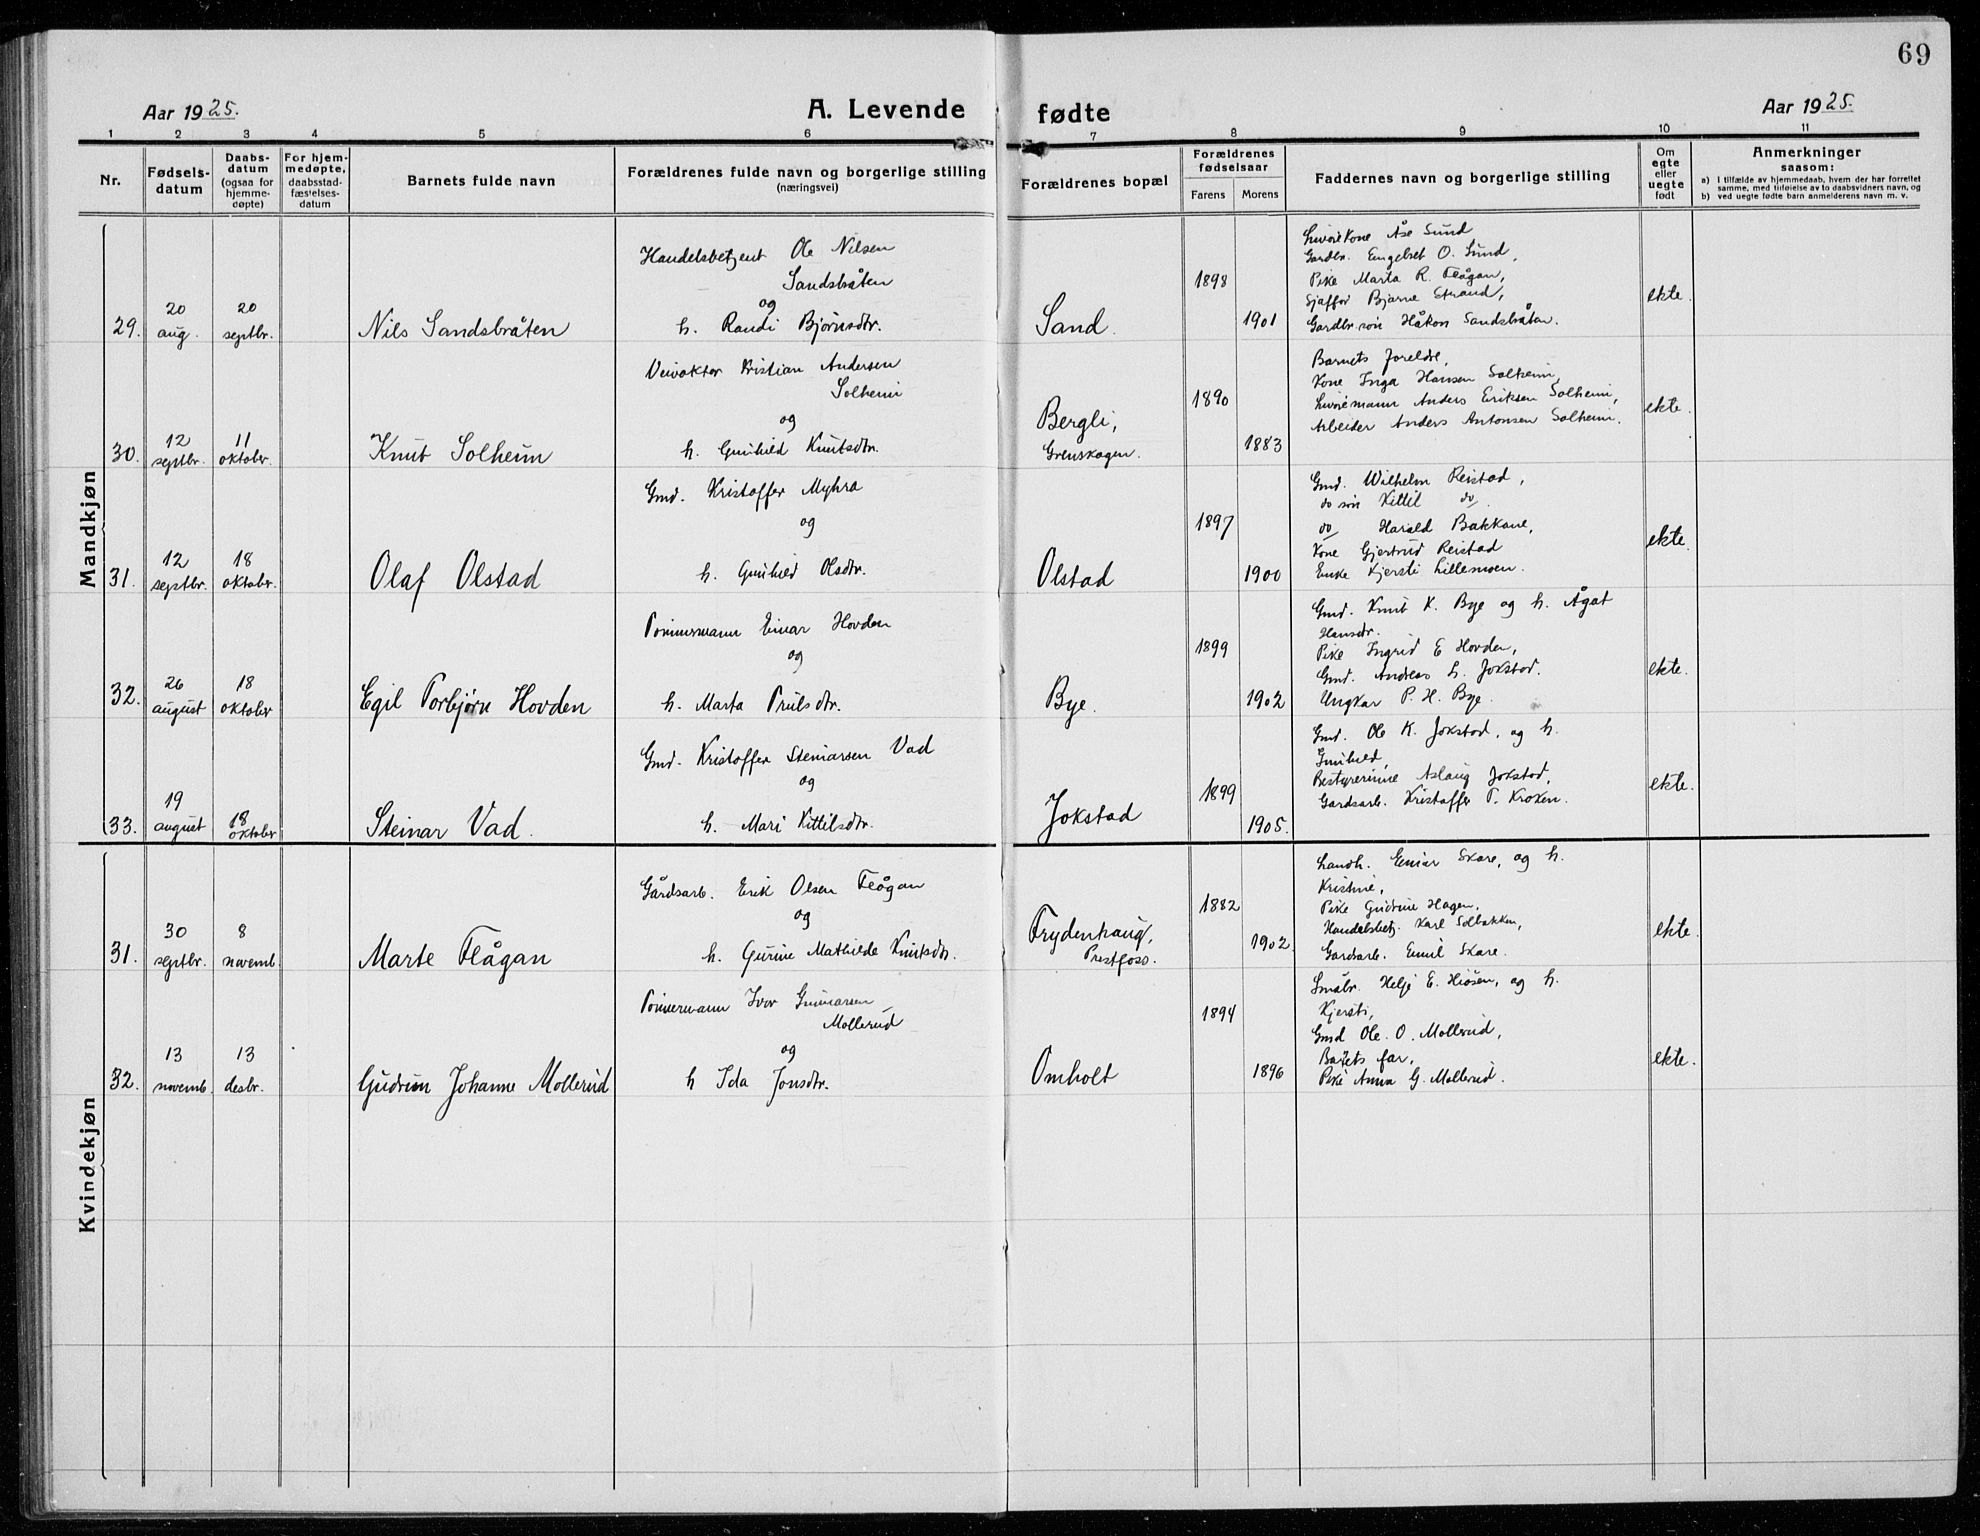 69
Aar 1925.
A. Levende fødte
Aar 1925.
1 2 3 4 5 6 7 8 9 10 11
Nr.
Fødsels-
datum
Daabs-
datum
(ogsaa for
hjemme-
døpte)
For hjem-
medøpte,
daabsstad-
fæstelses-
datum
Barnets fulde navn
Forældrenes fulde navn og borgerlige stilling
(næringsvei)
Forældrenes bopæl
Forældrenes
fødselsaar
Farens Morens
Faddernes navn og borgerlige stilling
Om
egte
eller
uegte
født
Anmerkninger
saasom:
a) I tilfælde av hjemmedaab, hvem der har forrettet
samme, med tilføielse av to daabsvidners navn, og
b) ved uegte fødte barn anmelderens navn m. v.
Mandkjøn
29.
20
aug.
20
septbr.
Nils Sandsbråten
Handelsbetjent Ole Nilsen
Sandsbråten
og
h. Randi Bjørnsdtr.
Sand.
1898
1901
Kone Åse Sund
Gardbr. Engebret O. Sund,
Pike Marta R. Flågan,
Sjåffør Bjarne Strand,
Gardbr. søn Håkon Sandsbråten.
ekte.
30.
12
septbr.
11
oktobr.
Knut Solheim
Veivokter Kristian Andersen
Solheim
og
h. Gunhild Knutsdtr.
Bergli,
Grenskogen.
1890
1883
Barnets foreldre,
Kone Inga Hansen Solheim,
Anders Eriksen Solheim,
Arbeider Anders Antonsen Solheim.
ekte.
31.
12
septbr.
18
oktober.
Olaf Olstad
Gmd. Kristoffer Myhra
og
h. Gunhild Olsdtr.
Olstad
1897
1900
Gmd. Wilhelm Reistad,
do søn Kittil do.
do Harald Bakkane,
Kone Gjertrud Reistad
Enke Kjersti Lillemoen.
ekte.
32.
26
august
18
oktober
Egil Torbjørn Hovden
Tømmermann Einar Hovden
og
h. Marta Trulsdtr.
Bye.
1899
1902
Gmd. Knut K. Bye og h. Ågat
Hansdtr.
Pike Ingrid E Hovden,
Gmd. Andreas L. Jokstad.
Ungkar P. H. Bye.
ekte.
33.
19
august
18
oktober
Steinar Vad.
Gmd. Kristoffer Steinarsen Vad
og
h. Mari Kittilsdtr.
Jokstad
1899
1905.
Gmd. Ole K. Jokstad, og h.
Gunhild,
Bestyrerinne Aslaug Jokstad,
Gardsarb. Kristoffer T. Kroken.
ekte.
Kvindekjøn
31.
30
septbr.
8
novemb
Marte Flågan
Gårdsarb. Erik Olsen Flågan
og
h. Gurine Mathilde Knutsdtr.
Frydenhaug,
Prestfoss.
1882
1902
Landh. Einar Skare, og h.
Kristine,
Pike Gudrine Hagen,
Handelsbetj. Karl Solbakken,
Gardsarb. Emil Skare.
ekte.
32.
13
novemb.
13
desbr.
Gudrun Johanne Mollerud
Tømmermann Ivar Gunnarsen
Mollerud
og
h Ida Jonsdtr.
Omholt
1894
1896
Småbr. Helje E. Hiåsen, og h.
Kjersti,
Gmd Ole. O. Mollerud,
Barnets far,
Pike Anna G. Mollerud.
ekte.